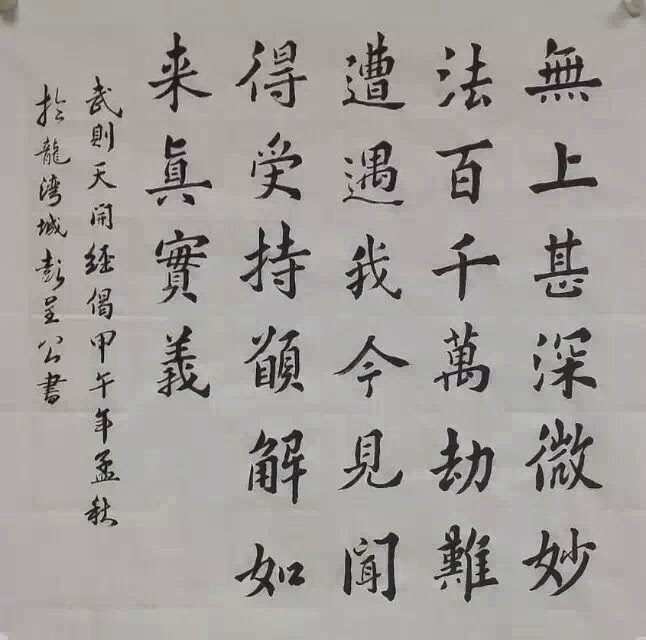 無上甚深微妙
法百千萬劫難
遭遇我今見聞
得受持願解如
来真實義
武則天開經偈甲午年孟秋
於龍湾城彭呈公書